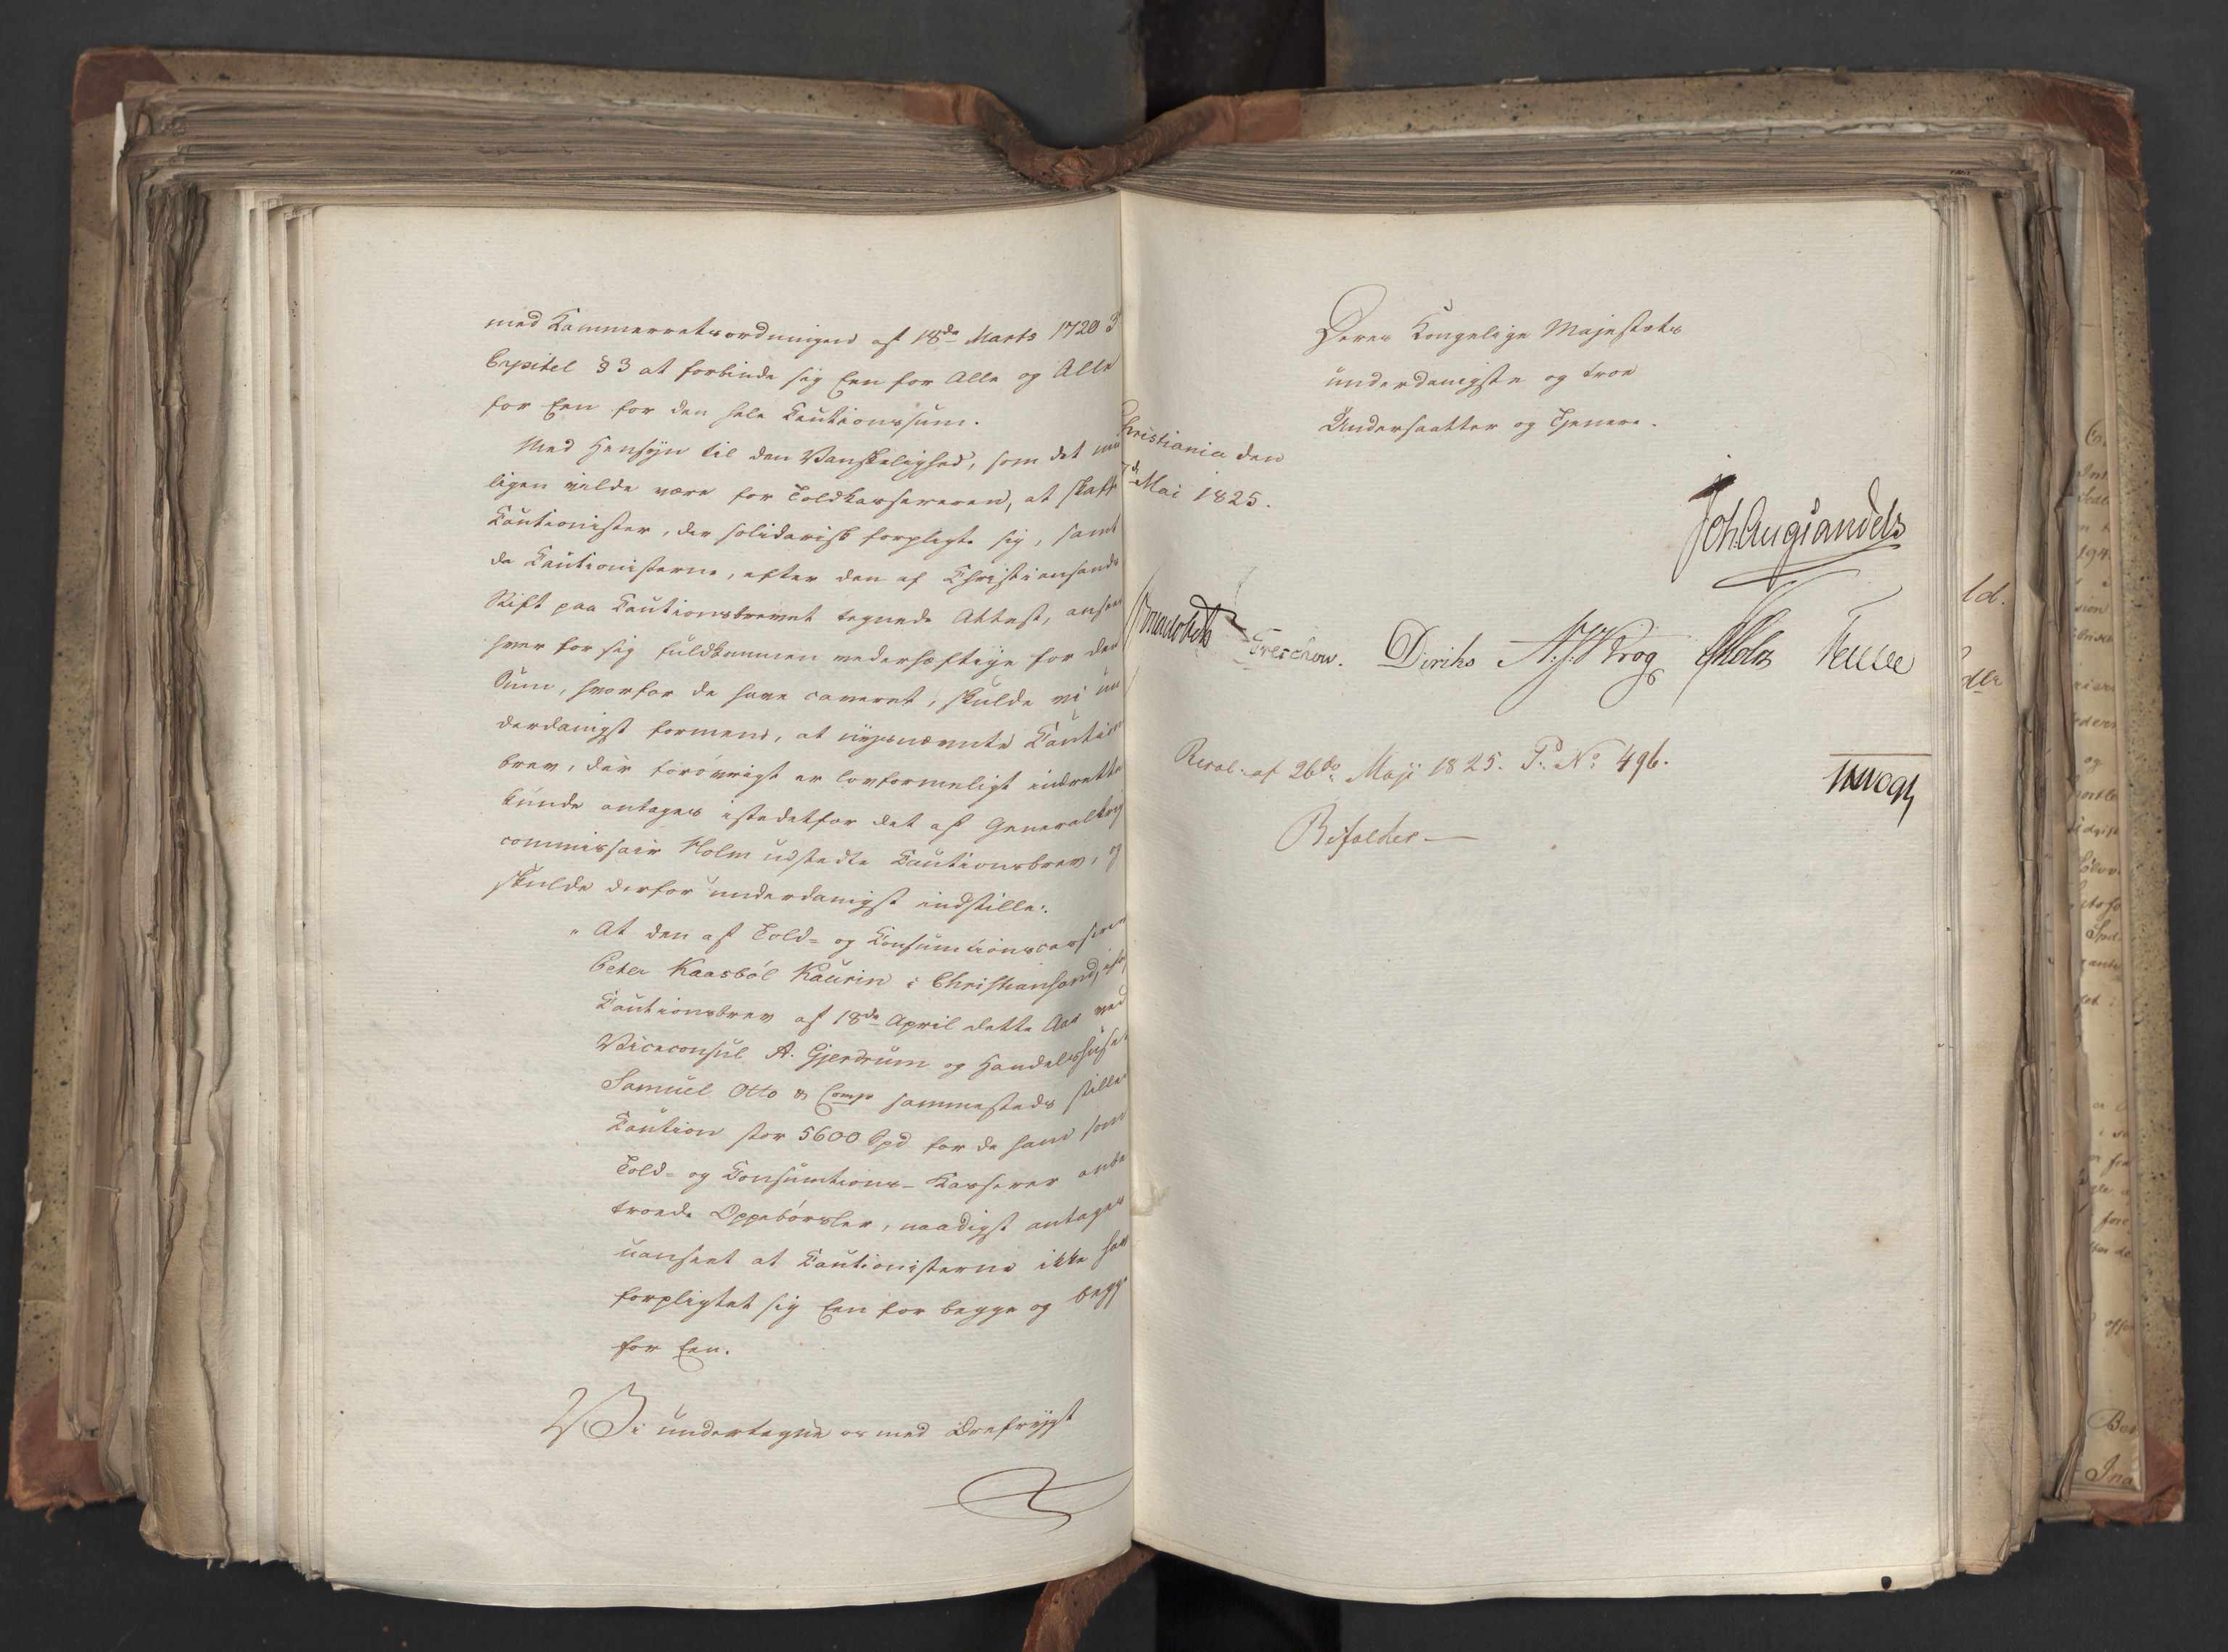 med Kammerretsordningen af 18de Marts 1720 3
Capitel § 3 at forbinde sig Een for Alle og Alle
for Een for den hele Cautionssum.
Med Hensyn til den Vanskelighed, som det
ligen vilde være for Toldkassereren, at skaffe
Cautionister, der solidarisk forpligte sig, samt
da Cautionisterne, efter den af Christiansands
Stift paa Cautionsbrevet tegnede Attest, ansees
hver for sig fuldkommen vederhæftige for den
Sum, hvorfor de have caveret, skulde vi un
derdanigst formene, at nysnævnte Caution
brev, der forövrigt er lovformeligt indrettet
kunde antages istedetfor det af Generalkrig
commissair Holm udstedte Cautionsbrev, og
skulde derfor underdanigst indstille:
"At den af Told- og Consumtionscasserer
Peter Kaasböl Kaurin i Christiansand,
Cautionsbrev af 18de April dette Aar ved
Viceconsul A. Gjerdrum og Handelshuset
Samuel Otto & Comp sammesteds stillede
Caution stor 5600 Spd for de ham som
Told- og Consumtions-Kasserer anbe
troede Oppebörsler, naadigst antages
uanseet at Cautionisterne ikke have
forpligtet sig Een for begge og begge
for Een.
Vi undertegne os med Ærefrygt
Deres Kongelige Majestæts
underdanigste og troe
Undersaatter og Tjenere.
Christiania den
7de Mai 1825.
Joh. Aug. Sandels
Treschow. Diriks A. J. Krog Holst
Resol. af 26de Maji 1825. P. No 496.
Bifaldes